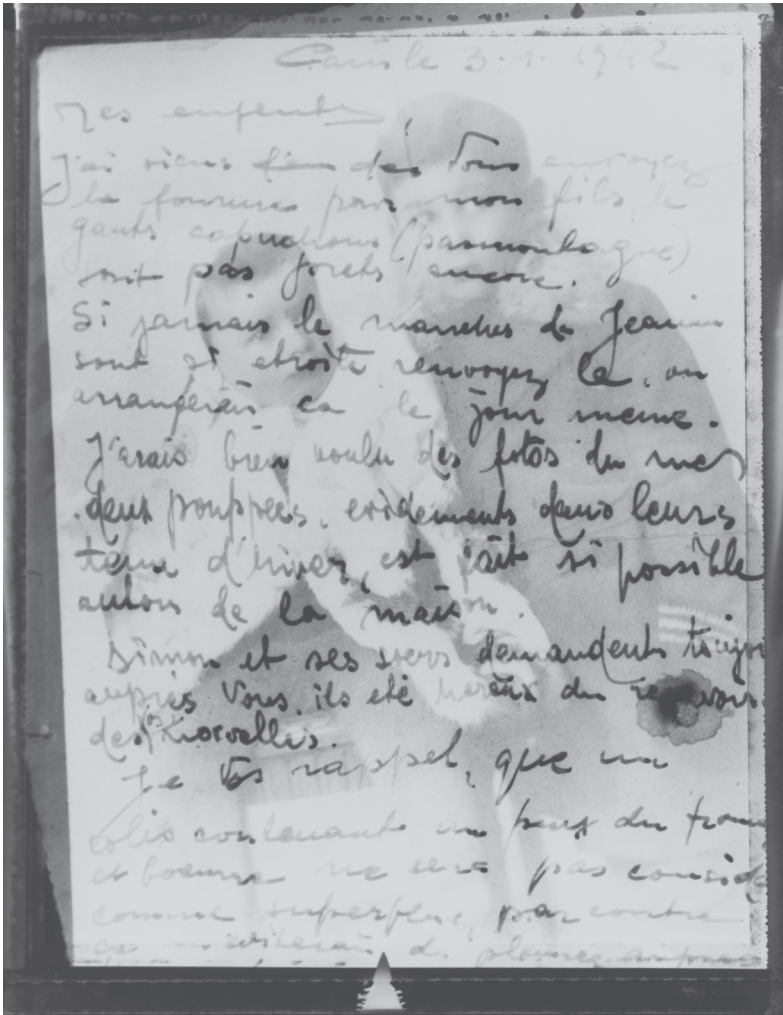 Paris le 3.1.1942
Mes enfents
J'ai viens des Vous envoyez
la fourrure pour mon fils, le
gants capuchons (passmontagne)
sont pas forets ancore.
Si jamais le manches de Jeanin
sont si etroite, renvoyez le, on
arrangerais ca le jour meme.
J'arais bien voulu des fotos du mes
deux pouppees, evidements dans leurs
tenu d'hiver, est fait si possible
autour de la maison.
Simon et ses soers demandents toujou
aupres Vous, ils eté hereux du
des
Je Vs rappel, que un
colis contenants un peux du from
et boeurre ne sera pas consid
comme superflue, par contre